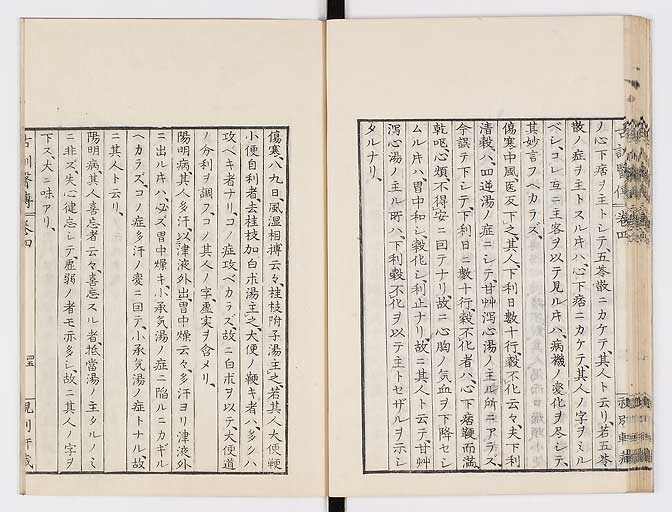 ノ心下痞ヲ主トシテ、五苓散ニカケテ、其人ト云リ、若五苓
散ノ症ヲ主トスルキハ、心下痞ニカケテ、其人ノ字ヲミル
ベシ、コレ互ニ主客ヲ以テ見ルキハ、病機ノ変化ヲ尽シテ、
其妙言フベカラズ、
傷寒中風医反下之其人、下利日數十行、穀不化云々、夫下利
清穀ハ、四逆湯ノ症ニシテ、甘艸瀉心湯ノ主ル所ニアラズ、
今誤テ下シテ、下利日ニ數十行、穀不化者ハ、心下痞鞕而満、
乾呕心煩不得安ニ回テナリ、故ニ心胸ノ気血ヲ下降セシ
ムルキハ、胃中和シ、穀化シ利止ナリ、故ニ其人ト云テ、甘艸
瀉心湯ノ主ル所ハ、下利穀不化ヲ以テ主トセザルヲ示シ
タルナリ、
傷寒八九日、風湿相搏云々、桂枝附子湯主之、若其人大便鞕
小便自利者、去桂枝加白朮湯主之、大便ノ鞕キ者ハ、多シハ
攻ベキ者ナリ、コノ症攻ベカラズ、故ニ白朮ヲ以テ、大便道
ノ分利ヲ調フ、コノ其人ノ字、虚実ヲ含メリ、
陽明病、其人多汗以津液外出、胃中燥云々、多汗ヨリ津液外
ニ出ルキハ、必ズ胃中燥キ、小承気湯ノ症ニ陥ルニカギル
ベカラズ、コノ症多汗ノ変ニ回テ、小承気湯ノ症トナル、故
ニ其人ト云リ、
陽明病、其人喜忘者云々、喜忘スル者、抵當湯ノ主タルノミ
ニ非ズ、失心健忘シテ虚弱ノ者モ亦多シ、故ニ其人ノ字ヲ
下ス、大ニ味アリ、